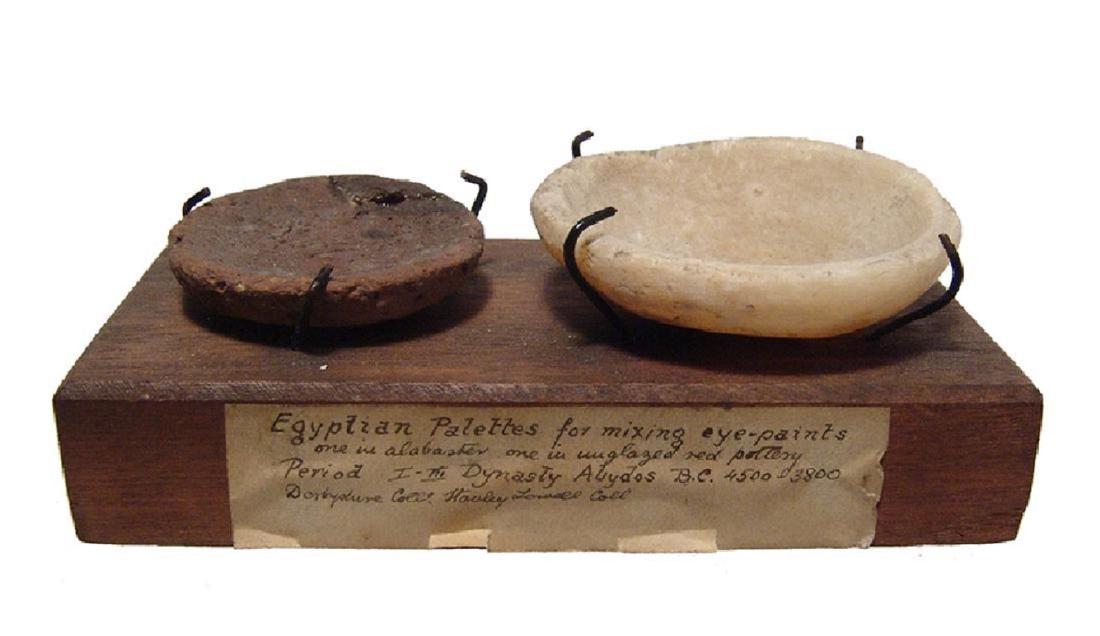 Egyptian Palettes for mixing eye-paints
one in alabaster one in unglazed red pottery
Period I-III Dynasty Abydos B.C. 4500-3800
Coll. Coll